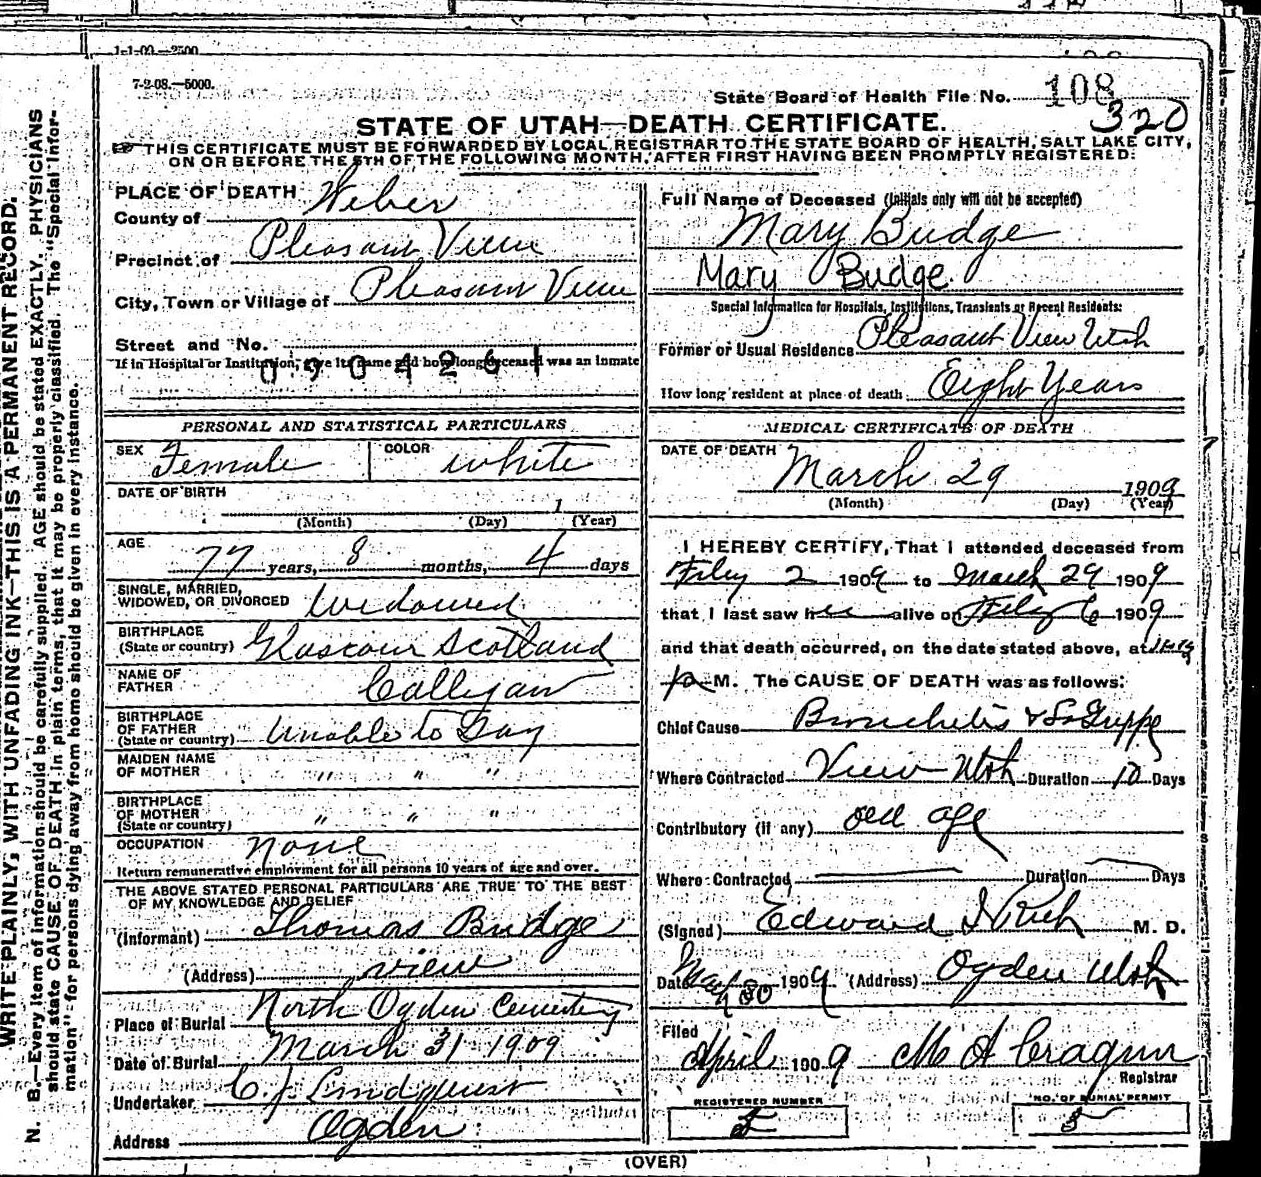 1-1-09.—2500
7-2-08.—5000.
State Board of Health File No. 108
320
STATE OF UTAH—DEATH CERTIFICATE.
THIS CERTIFICATE MUST BE FORWARDED BY LOCAL REGISTRAR TO THE STATE BOARD OF HEALTH, SALT LAKE CITY,
ON OR BEFORE THE 5TH OF THE FOLLOWING MONTH, AFTER FIRST HAVING BEEN PROMPTLY REGISTERED:
WRITE PLAINLY, WITH UNFADING INK—THIS IS A PERMANENT RECORD.
N. B.—Every item of information should be carefully supplied. AGE should be stated EXACTLY. PHYSICIANS
should state CAUSE OF DEATH in plain terms, that it may be properly classified. The "Special Infor-
mation" for persons dying away from home should be given in every instance.
PLACE OF DEATH
County of Weber
Precinct of Pleasant View
City, Town or Village of Pleasant View
Street and No.
If in Hospital or Institution, give its name and how long deceased was an inmate
0904261
PERSONAL AND STATISTICAL PARTICULARS
SEX Female COLOR White
DATE OF BIRTH 1
(Month) (Day) (Year)
AGE 77 years, 8 months, 4 days
SINGLE, MARRIED,
WIDOWED, OR DIVORCED Widowed
BIRTHPLACE
(State or country) Glascow Scotland
NAME OF
FATHER Calligan
BIRTHPLACE
OF FATHER
(State or country) Unable to Say
MAIDEN NAME
OF MOTHER " " "
BIRTHPLACE
OF MOTHER
(State or country) " " "
OCCUPATION None
Return remunerative employment for all persons 10 years of age and over.
THE ABOVE STATED PERSONAL PARTICULARS ARE TRUE TO THE BEST
OF MY KNOWLEDGE AND BELIEF
(Informant) Thomas Budge
(Address) View
Place of Burial North Ogden Cemetery
Date of Burial March 31 1909
Undertaker C. J. Lindquist
Address Ogden
Full Name of Deceased (Initials only will not be accepted)
Mary Budge
Mary Budge
Special Information for Hospitals, Institutions, Transients or Recent Residents:
Former or Usual Residence Pleasant View Utah
How long resident at place of death Eight Years
MEDICAL CERTIFICATE OF DEATH
DATE OF DEATH March 29 1909
(Month) (Day) (Year)
I HEREBY CERTIFY, That I attended deceased from
2 1909 to March 29 1909
that I last saw her alive on 6 1909
and that death occurred, on the date stated above, at
p M. The CAUSE OF DEATH was as follows:
Chief Cause Bronchitis & LaGrippe
Where Contracted View Utah Duration 10 Days
Contributory (if any) old age
Where Contracted Duration Days
(Signed) Edward I Rich M. D.
Date 30 1909 (Address) Ogden Utah
Filed
April 1909 M A Cragun
Registrar
REGISTERED NUMBER
5
NO. OF BURIAL PERMIT
5
(OVER)